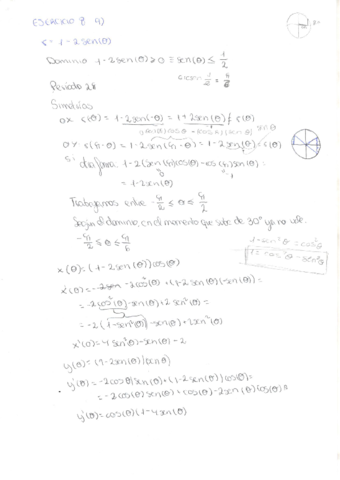 EJERCICIO 8 9)
r = 1 - 2sen(θ)
Dominio 1 - 2sen(θ) ≥ 0 ≡ sen(θ) ≤ 1/2
arcsen 1/2 = π/6
Periodo 2π
Simetrías
OX r(θ) = 1 - 2sen(-θ) = 1 + 2sen(θ) ≠ r(θ)
OY r(π-θ) = 1 - 2sen(π-θ) = 1 - 2sen(θ) = r(θ)
sen θ
de forma 1 - 2(sen(π)cos(θ) - cos(π)sen(θ)) =
= 1 - 2sen(θ)
Trabajamos entre -π/2 ≤ θ ≤ π/2
Según el dominio, en el momento que sube de 30° ya no vale.
-π/2 ≤ θ ≤ π/6
1 - sen²θ = cos²θ
x(θ) = (1 - 2sen(θ))cos(θ)
x'(θ) = -2cos²(θ) + (1 - 2sen(θ))(-sen(θ)) =
= -2cos²(θ) - sen(θ) + 2sen²(θ) =
= -2(1 - sen²(θ)) - sen(θ) + 2sen²(θ)
x'(θ) = 4sen²(θ) - sen(θ) - 2
y(θ) = (1 - 2sen(θ))sen(θ)
y'(θ) = -2cosθ sen(θ) + (1 - 2sen(θ))cos(θ) =
= -2cos(θ)sen(θ) + cos(θ) - 2sen(θ)cos(θ) =
y'(θ) = cos(θ)(1 - 4sen(θ))